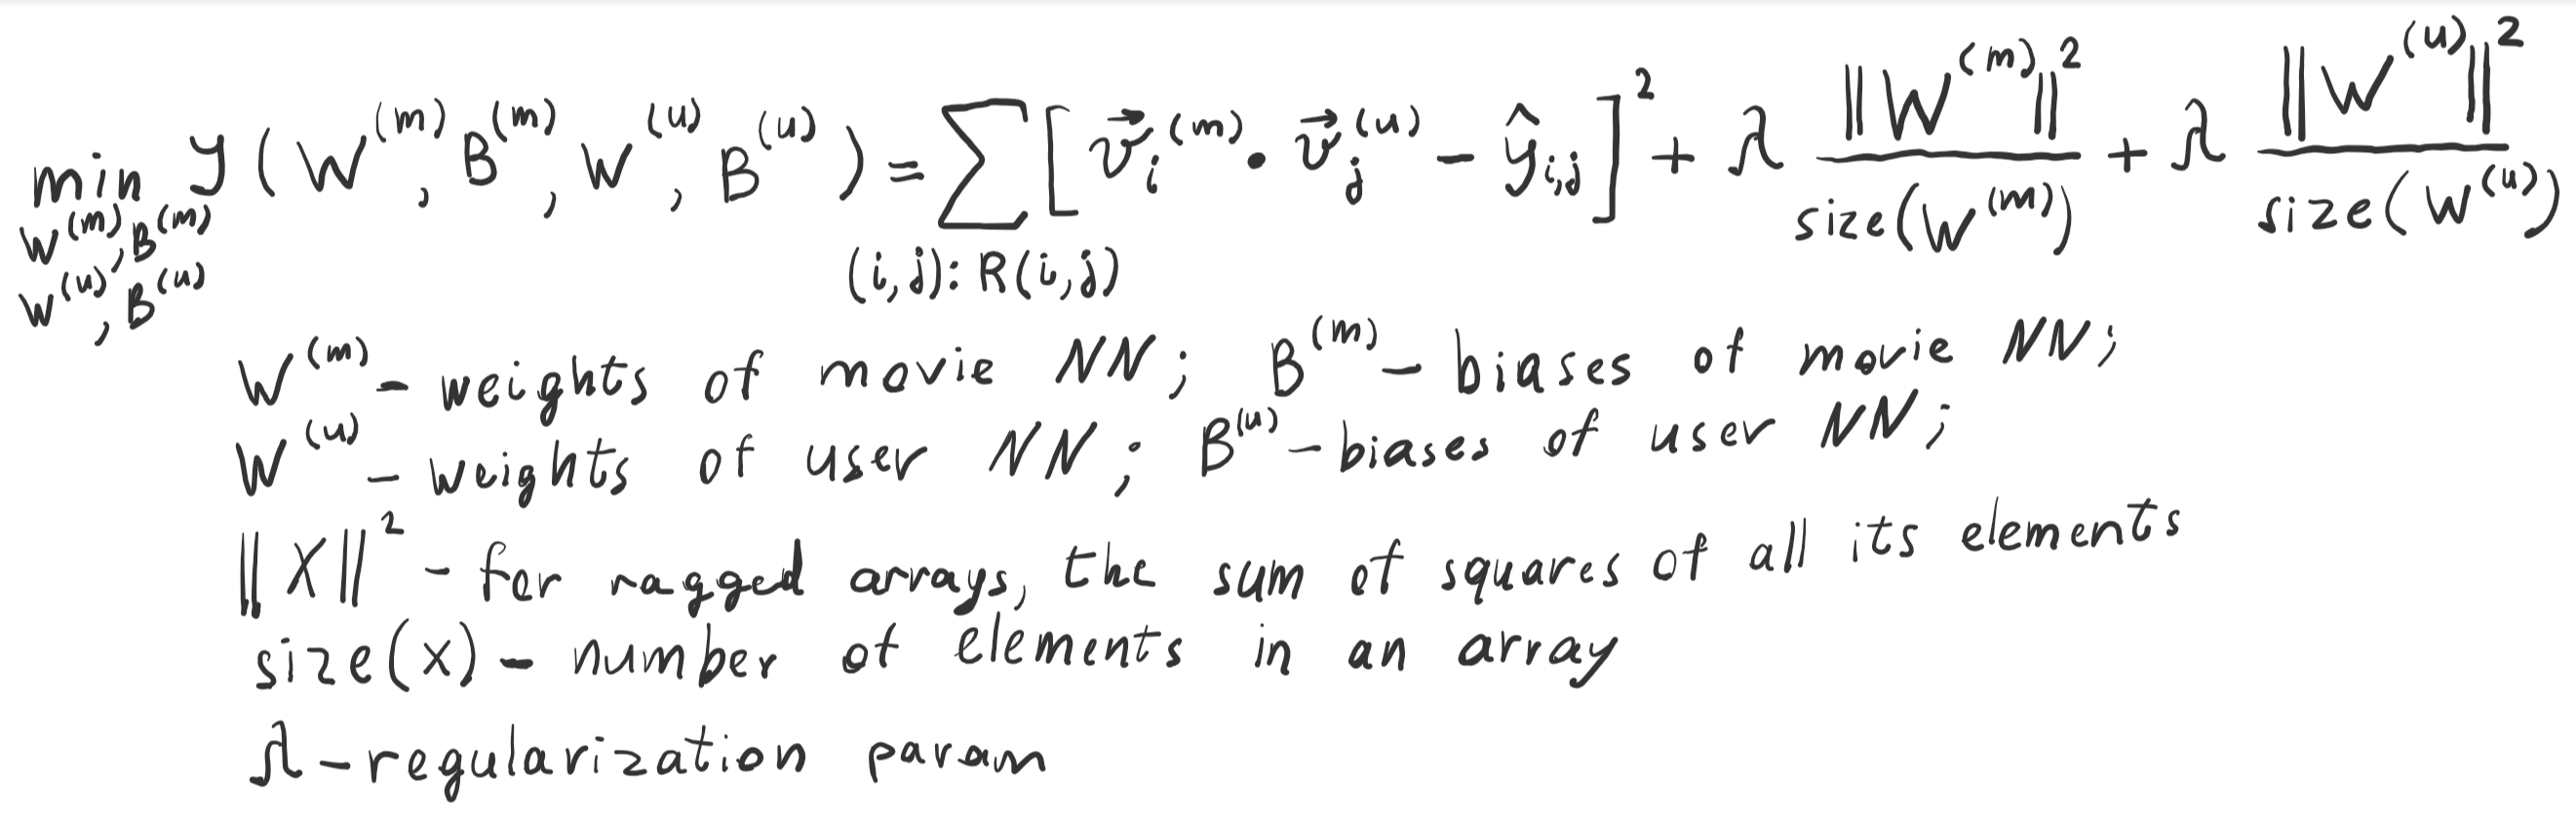 min y(W^(m), B^(m), W^(u), B^(u)) = ∑ [v⃗_i^(m) · v⃗_j^(u) − ŷ_i,j]^2 + λ ||W^(m)||^2 / size(W^(m)) + λ ||W^(u)||^2 / size(W^(u))
W^(m), B^(m)
W^(u), B^(u)
(i,j): R(i,j)
W^(m) – weights of movie NN; B^(m) – biases of movie NN;
W^(u) – weights of user NN; B^(u) – biases of user NN;
||X||^2 – for ragged arrays, the sum of squares of all its elements
size(x) – number of elements in an array
λ – regularization param